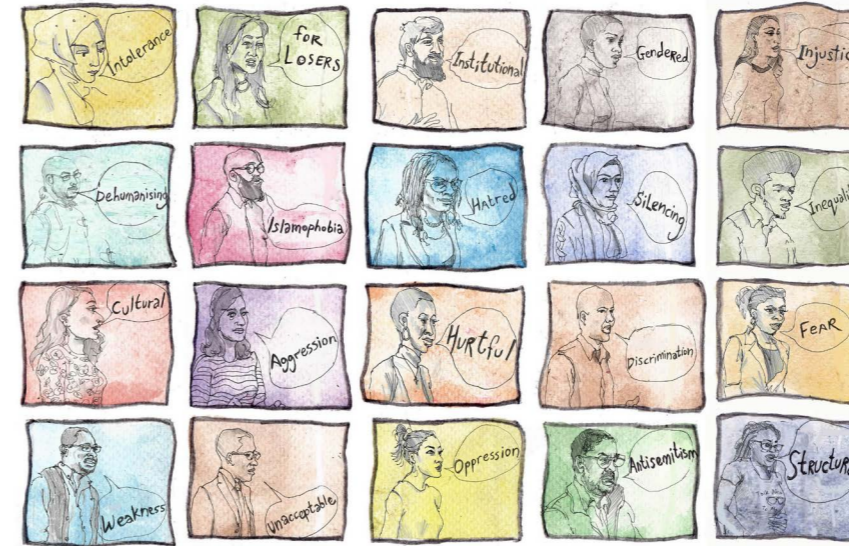 Intolerance
for
LOSERS
Institutional
Gendered
Injustic
Dehumanising
Islamophobia
Hatred
Silencing
Inequali
Cultural
Aggression
HURtful
Discrimination
FEAR
Weakness
Unacceptable
Oppression
Antisemitism
Structur